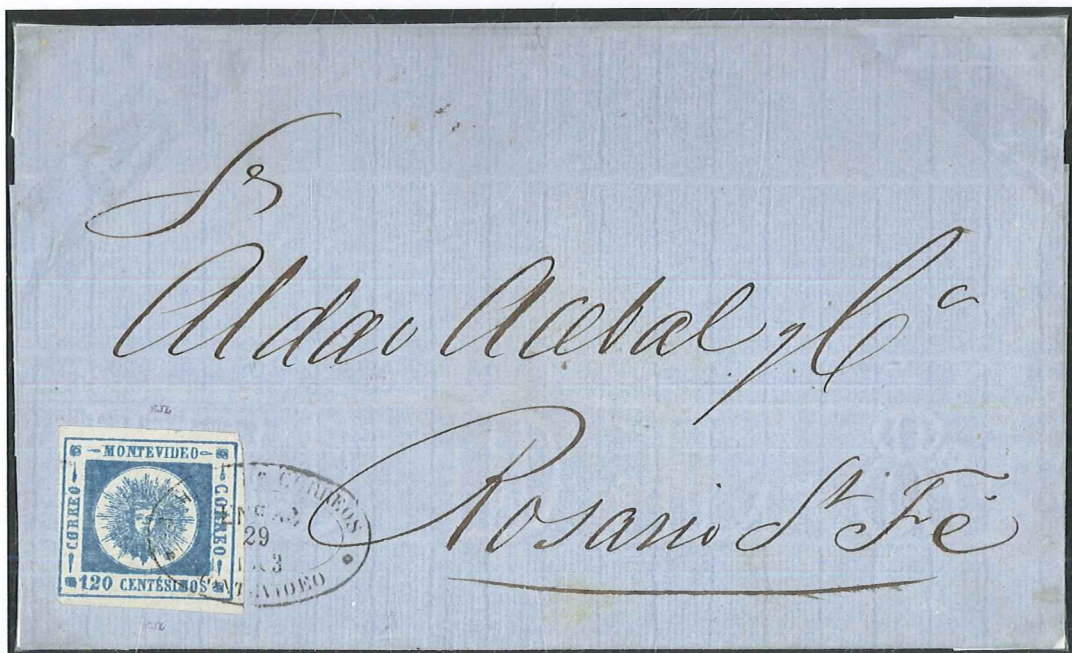 Sr
Aldao Acebal y Ca
Rosario Sta Fé
MONTEVIDEO
CORREO
CORREO
120 CENTÉSIMOS
CORREOS
29